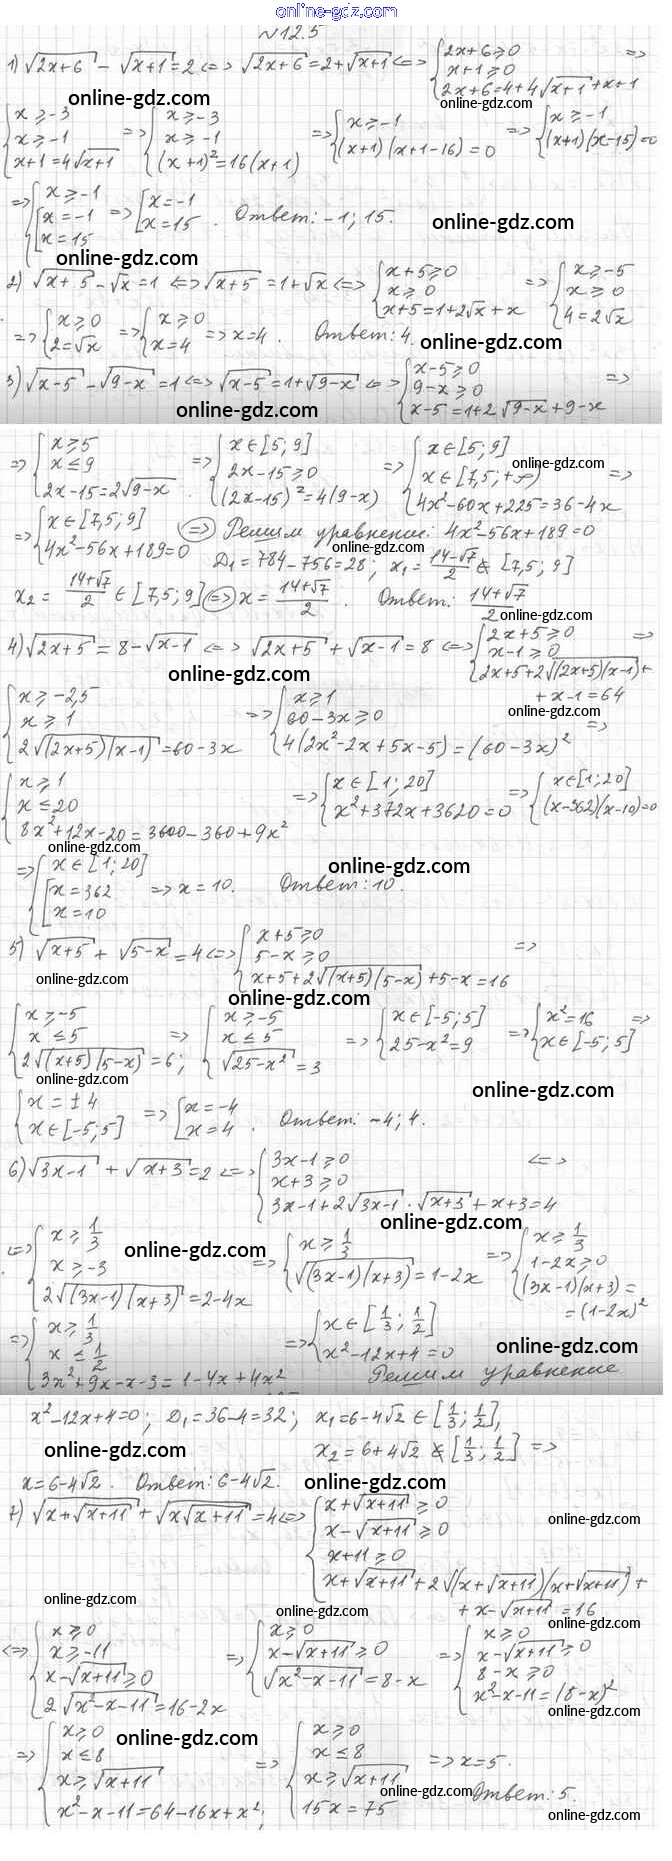 online-gdz.com
№12.5
1) √(2x+6) - √(x+1) = 2 <=> √(2x+6) = 2+√(x+1) <=> { 2x+6≥0
x+1≥0
2x+6=4+4√(x+1)+x+1 =>
online-gdz.com online-gdz.com
{ x≥-3
x≥-1
x+1=4√(x+1) => { x≥-3
x≥-1
(x+1)²=16(x+1) => { x≥-1
(x+1)(x+1-16)=0 => { x≥-1
(x+1)(x-15)=0
=> { x≥-1
[ x=-1
x=15 => [ x=-1
x=15 . Ответ: -1; 15.
online-gdz.com
online-gdz.com
2) √(x+5) - √x = 1 <=> √(x+5) = 1+√x <=> { x+5≥0
x≥0
x+5=1+2√x+x => { x≥-5
x≥0
4=2√x
=> { x≥0
2=√x => { x≥0
x=4 => x=4. Ответ: 4.
online-gdz.com
3) √(x-5) - √(9-x) = 1 <=> √(x-5) = 1+√(9-x) <=> { x-5≥0
9-x≥0
x-5=1+2√(9-x)+9-x =>
online-gdz.com
=> { x≥5
x≤9
2x-15=2√(9-x) => { x∈[5;9]
2x-15≥0
(2x-15)²=4(9-x) => { x∈[5;9]
x∈[7,5;+∞)
4x²-60x+225=36-4x =>
online-gdz.com
=> { x∈[7,5;9]
4x²-56x+189=0 => Решим уравнение: 4x²-56x+189=0
online-gdz.com
D₁=784-756=28; x₁=(14-√7)/2 ∉ [7,5;9]
x₂=(14+√7)/2 ∈ [7,5;9] => x=(14+√7)/2 . Ответ: (14+√7)/2
online-gdz.com
4) √(2x+5) = 8-√(x-1) <=> √(2x+5) + √(x-1) = 8 <=> { 2x+5≥0
x-1≥0
2x+5+2√((2x+5)(x-1)) +
+x-1=64 =>
online-gdz.com
online-gdz.com
{ x≥-2,5
x≥1
2√((2x+5)(x-1))=60-3x => { x≥1
60-3x≥0
4(2x²-2x+5x-5)=(60-3x)² =>
{ x≥1
x≤20
8x²+12x-20=3600-360+9x² => { x∈[1;20]
x²+372x+3620=0 => { x∈[1;20]
(x-362)(x-10)=0
online-gdz.com
online-gdz.com
=> { x∈[1;20]
[ x=362
x=10 => x=10. Ответ: 10.
5) √(x+5) + √(5-x) = 4 <=> { x+5≥0
5-x≥0
x+5+2√((x+5)(5-x))+5-x=16 =>
online-gdz.com
online-gdz.com
{ x≥-5
x≤5
2√((x+5)(5-x))=6; => { x≥-5
x≤5
√(25-x²)=3 => { x∈[-5;5]
25-x²=9 => { x²=16
x∈[-5;5] =>
online-gdz.com
online-gdz.com
{ x=±4
x∈[-5;5] => [ x=-4
x=4 . Ответ: -4; 4.
6) √(3x-1) + √(x+3) = 2 <=> { 3x-1≥0
x+3≥0
3x-1+2√(3x-1)·√(x+3)+x+3=4 <=>
online-gdz.com
online-gdz.com
<=> { x≥1/3
x≥-3
2√((3x-1)(x+3))=2-4x => { x≥1/3
√((3x-1)(x+3))=1-2x => { x≥1/3
1-2x≥0
(3x-1)(x+3)=
=(1-2x)²
=> { x≥1/3
x≤1/2
3x²+9x-x-3=1-4x+4x² => { x∈[1/3;1/2]
x²-12x+4=0
online-gdz.com
Решим уравнение
x²-12x+4=0; D₁=36-4=32; x₁=6-4√2 ∈[1/3;1/2],
online-gdz.com
x₂=6+4√2 ∉[1/3;1/2] =>
x=6-4√2 . Ответ: 6-4√2.
online-gdz.com
7) √(x+√(x+11)) + √(x√(x+11)) = 4 <=> { x+√(x+11)≥0
x-√(x+11)≥0
x+11≥0
x+√(x+11)+2√((x+√(x+11))(x+√(x+11))) +
+x-√(x+11)=16
online-gdz.com
online-gdz.com
online-gdz.com
online-gdz.com
<=> { x≥0
x≥-11
x-√(x+11)≥0
2√(x²-x-11)=16-2x => { x≥0
x-√(x+11)≥0
√(x²-x-11)=8-x => { x≥0
x-√(x+11)≥0
8-x≥0
x²-x-11=(8-x)²
online-gdz.com
online-gdz.com
=> { x≥0
x≤8
x≥√(x+11)
x²-x-11=64-16x+x²; => { x≥0
x≤8
x≥√(x+11)
15x=75 => x=5.
online-gdz.com
Ответ: 5.
online-gdz.com